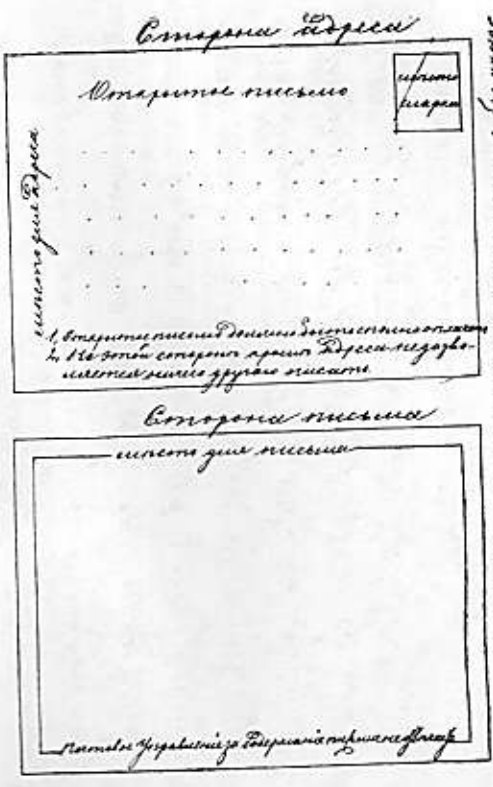 Сторона Адреса
Открытое письмо
место
марки
место для Адреса
1, Открытые письма должны быть оплачены
2, На этой стороне кроме Адреса не дозво-
ляется ничего другого писать.
Сторона письма
место для письма
Почтовое Управление за Содержание письма не